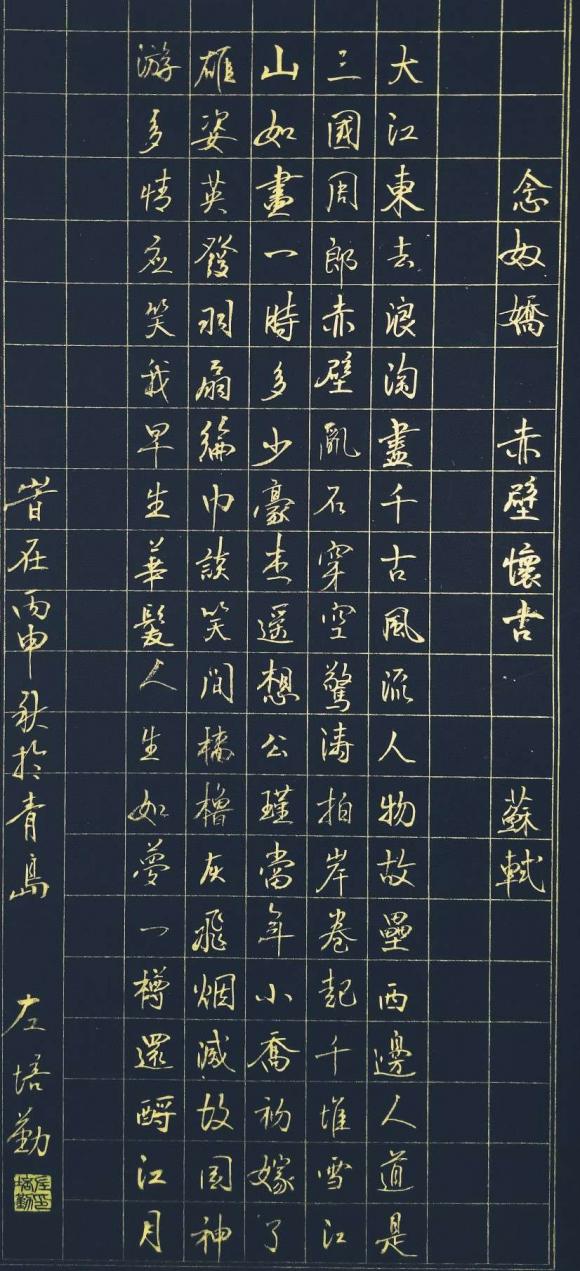 念奴嬌 赤壁懷古 蘇軾
大江東去浪淘盡千古風流人物故壘西邊人道是
三國周郎赤壁亂石穿空驚涛拍岸卷起千堆雪江
山如畫一時多少豪杰遥想公瑾當年小喬初嫁了
雄姿英發羽扇綸巾談笑間檣櫓灰飛烟滅故国神
游多情应笑我早生華髮人生如夢一樽還酹江月
旹在丙申秋於青島 左培勤